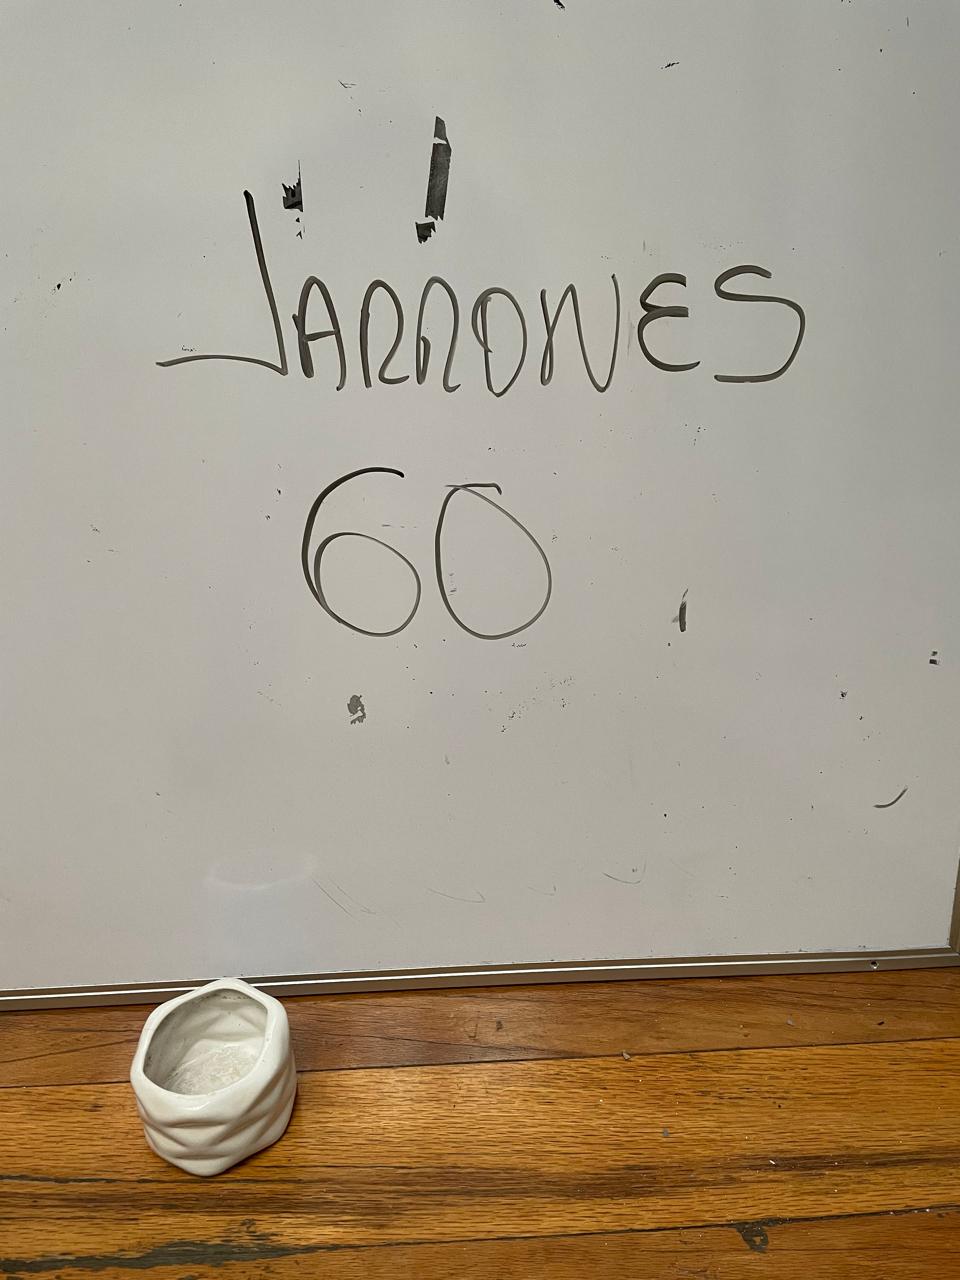 JARRONES
60